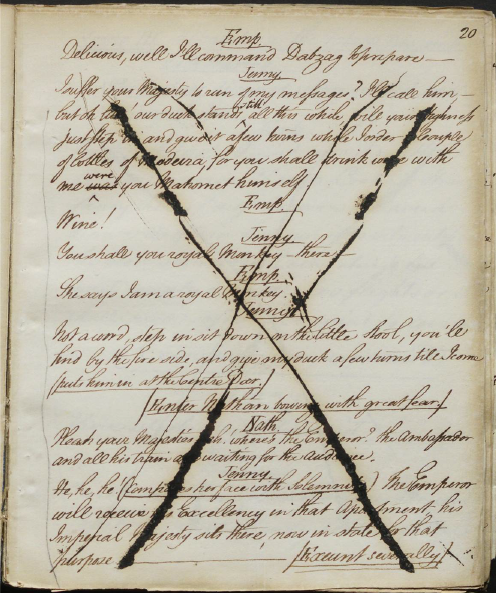 20
Emp.
Delicious, well I'll command Dabzag to prepare —
Jenny
I suffer your Majesty to run of my messages? I'll call him,
but oh la! our duck stands still all this while, will your Highness
just step in and give it a few turns while I order a Couple
of bottles of Madeira, for you shall drink wine with
me were was you Mahomet himself
Emp.
Wine!
Jenny
You shall you royal Monkey — there —
Emp.
She says I am a royal Monkey
Jenny
Not a word, step in sit down on the little Stool, you'll
find by the fire side, and give my duck a few turns till I come
(puts him in at the Centre Door.)
[Enter Nathan bowing with great fear]
Nath.
Pleash your Majesties where's the Emperor? the Ambassador
and all his train are waiting for the audience.
Jenny
He, he, he (Composes her face with Solemnity) The Emperor
will receive his Excellency in that Apartment his
Imperial Majesty sits there, now in state for that
purpose [Exeunt severally]